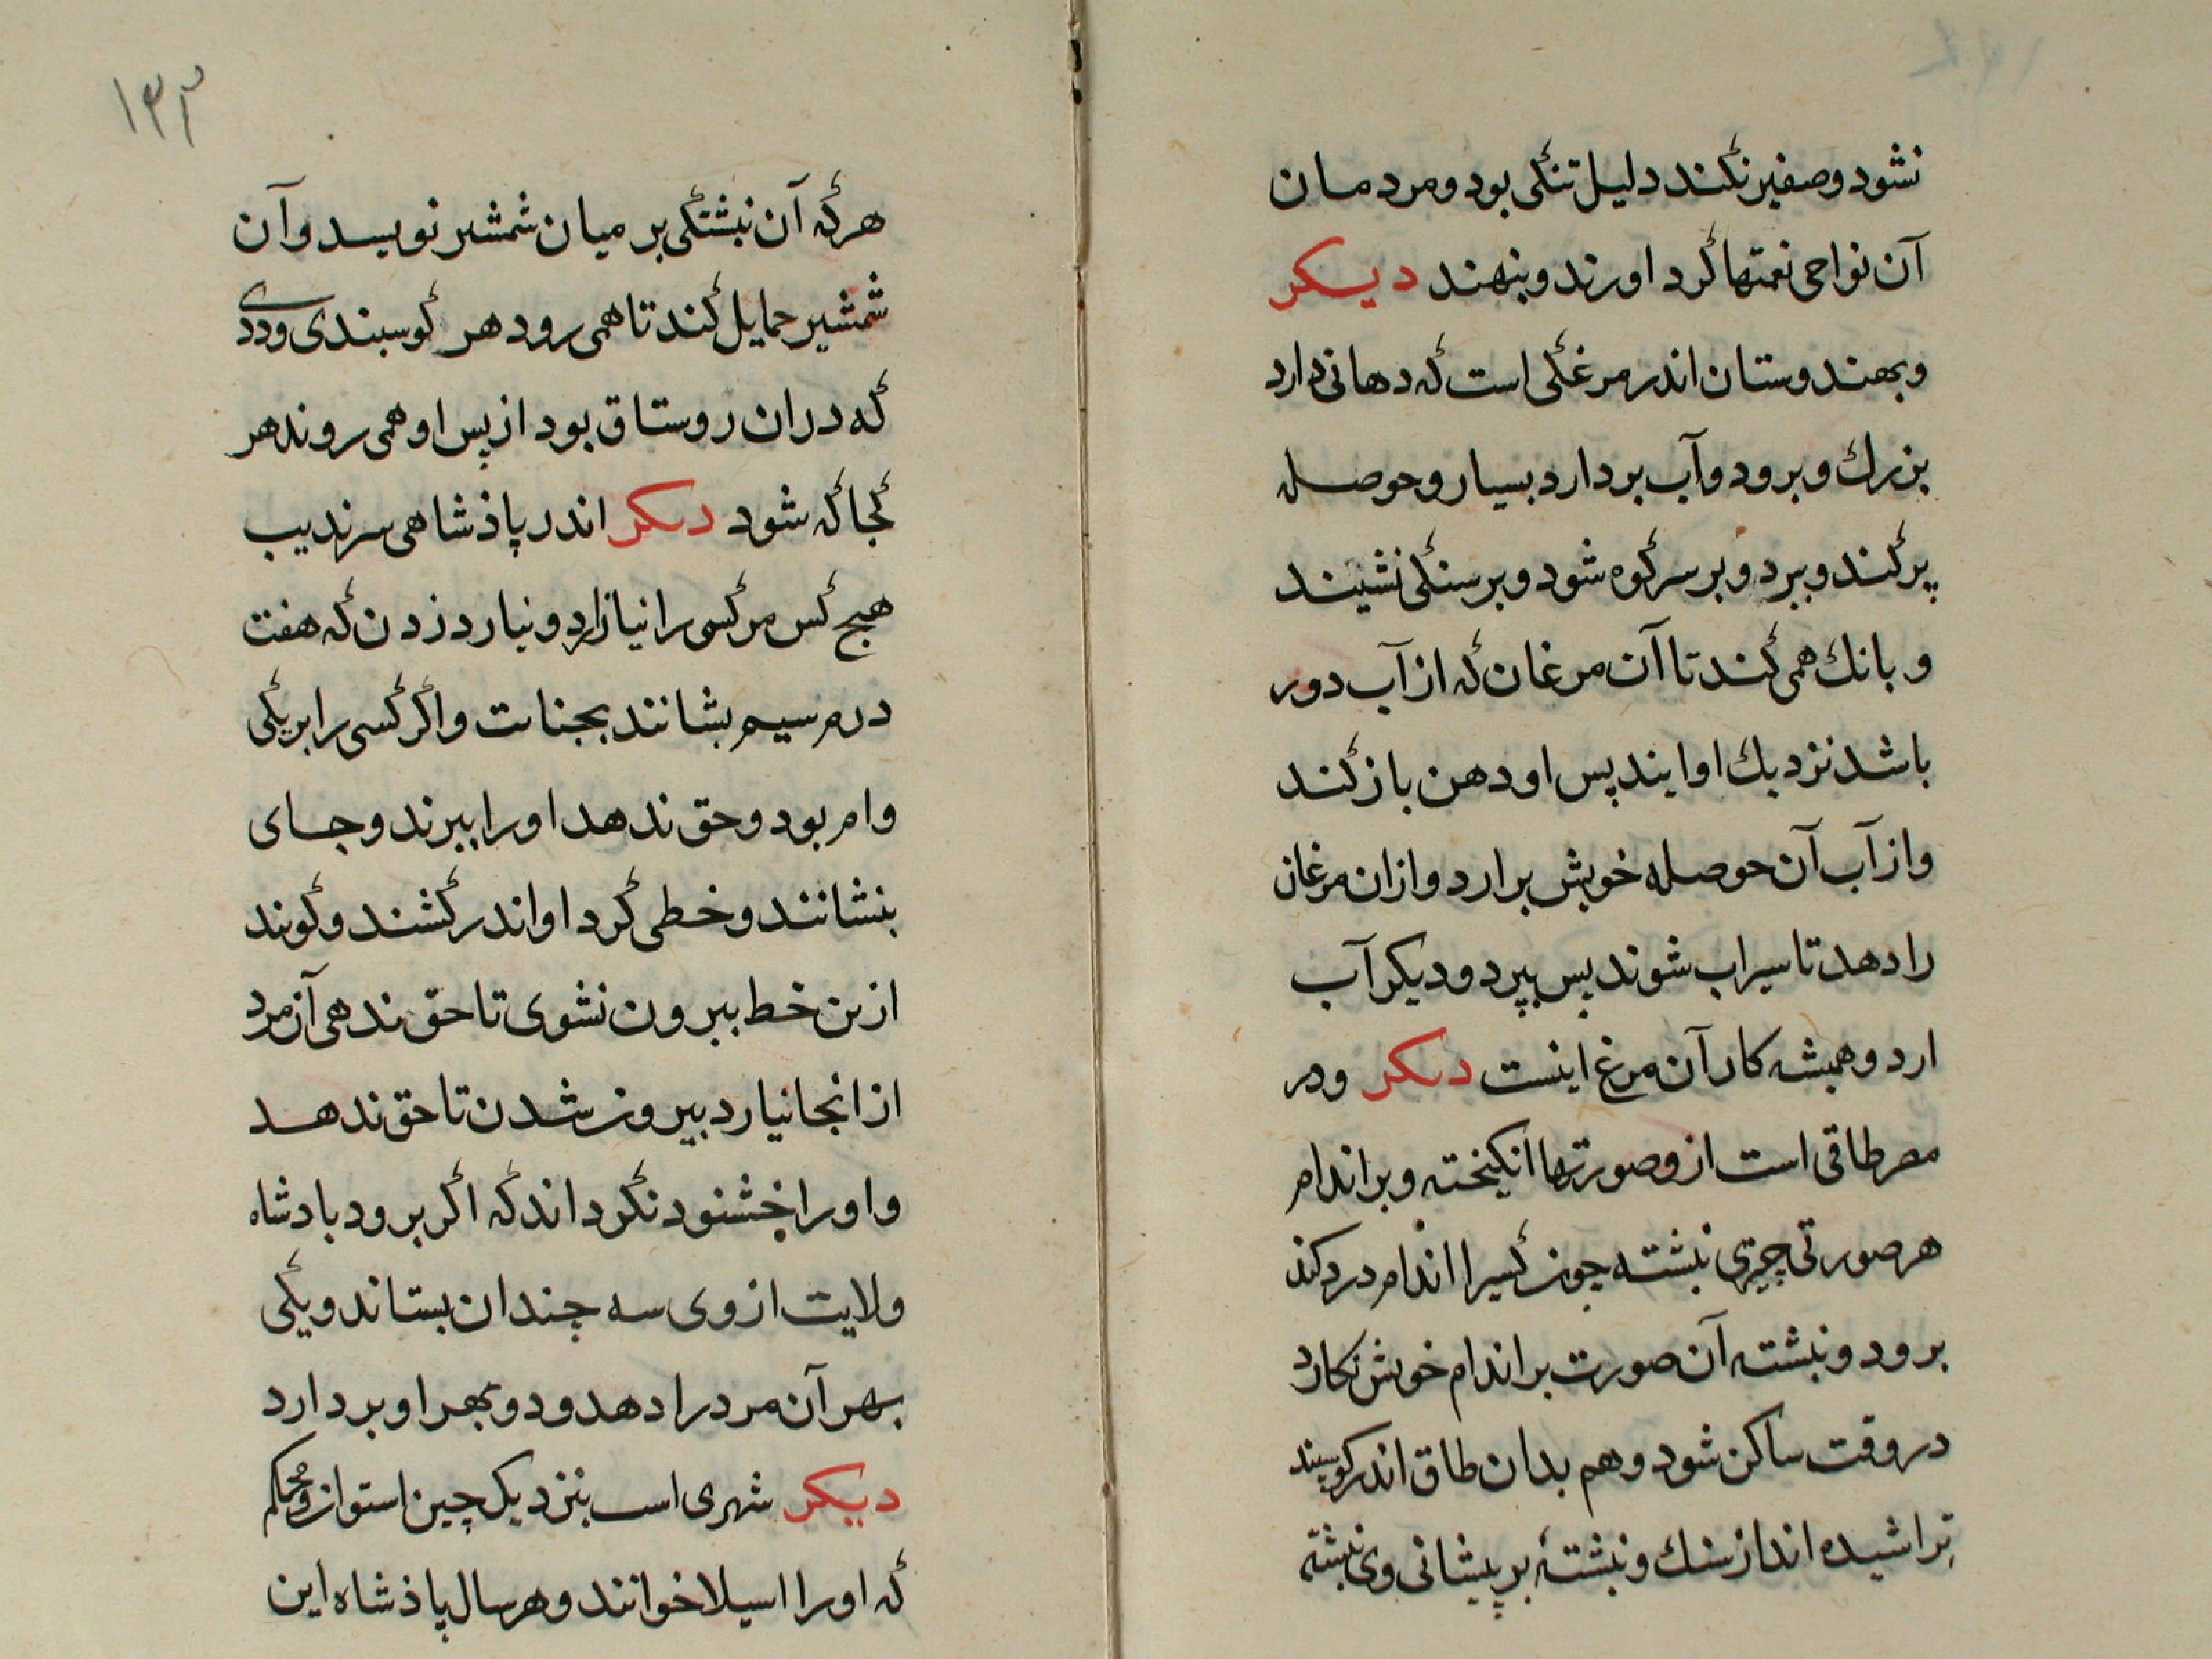 نشود و صفیر نکند دلیل تنگی بود و مردمان
آن نواحی نعمتها گرد اورند و بنهند دیکر
و بهندوستان اندر مرغکی است که دهانی دارد
بزرك و برود و آب بردارد بسیار و حوصله
پر کند و ببرد و بر سر کوه شود و بر سنکی نشیند
و بانك همی کند تا آن مرغان که از آب دور
باشد نزدیك او ایند پس او دهن باز کند
و از آب آن حوصله خویش برارد و ازان مرغان
را دهد تا سیراب شوند پس بپرد و دیکر آب
ارد و همیشه کار آن مرغ اینست دیکر و در
مصر طاقی است ازو صورتها انکیخته و بر اندام
هر صورتی چیزی نبشته چون کسیرا اندام درد کند
برود و نبشته آن صورت بر اندام خویش نکارد
در وقت ساکن شود و هم بدان طاق اندر کوسپند
تراشیده اند از سنك و نبشتهٔ بر پیشانی وی نبشته
۱۳۳
هر که آن نبشتکی بر میان شمشیر نویسد و آن
شمشیر حمایل کند تا همی رود هر کوسبندی و ددی
که دران روستاق بود از پس او همی روند هر
کجا که شود دیکر اندر پاذشاهی سرندیب
هیج کس مر کسی را نیازارد و نیارد زدن که هفت
درم سیم بشانند بجنایت و اکر کسی را بر یکی
وام بود و حق ندهد او را ببرند و جای
بنشانند و خطی کرد او اندر کشند و کویند
ازین خط بیرون نشوی تا حق ندهی آن مرد
از انجا نیارد بیرون شدن تا حق ندهد
و او را خشنود نکرداند که اکر برود بادشاه
ولایت از وی سه چندان بستاند و یکی
بهر آن مرد را دهد و دو بهر او بردارد
دیکر شهری است بنزدیک چین استوار و محکم
که او را اسیلا خوانند و هر سال پاذشاه این